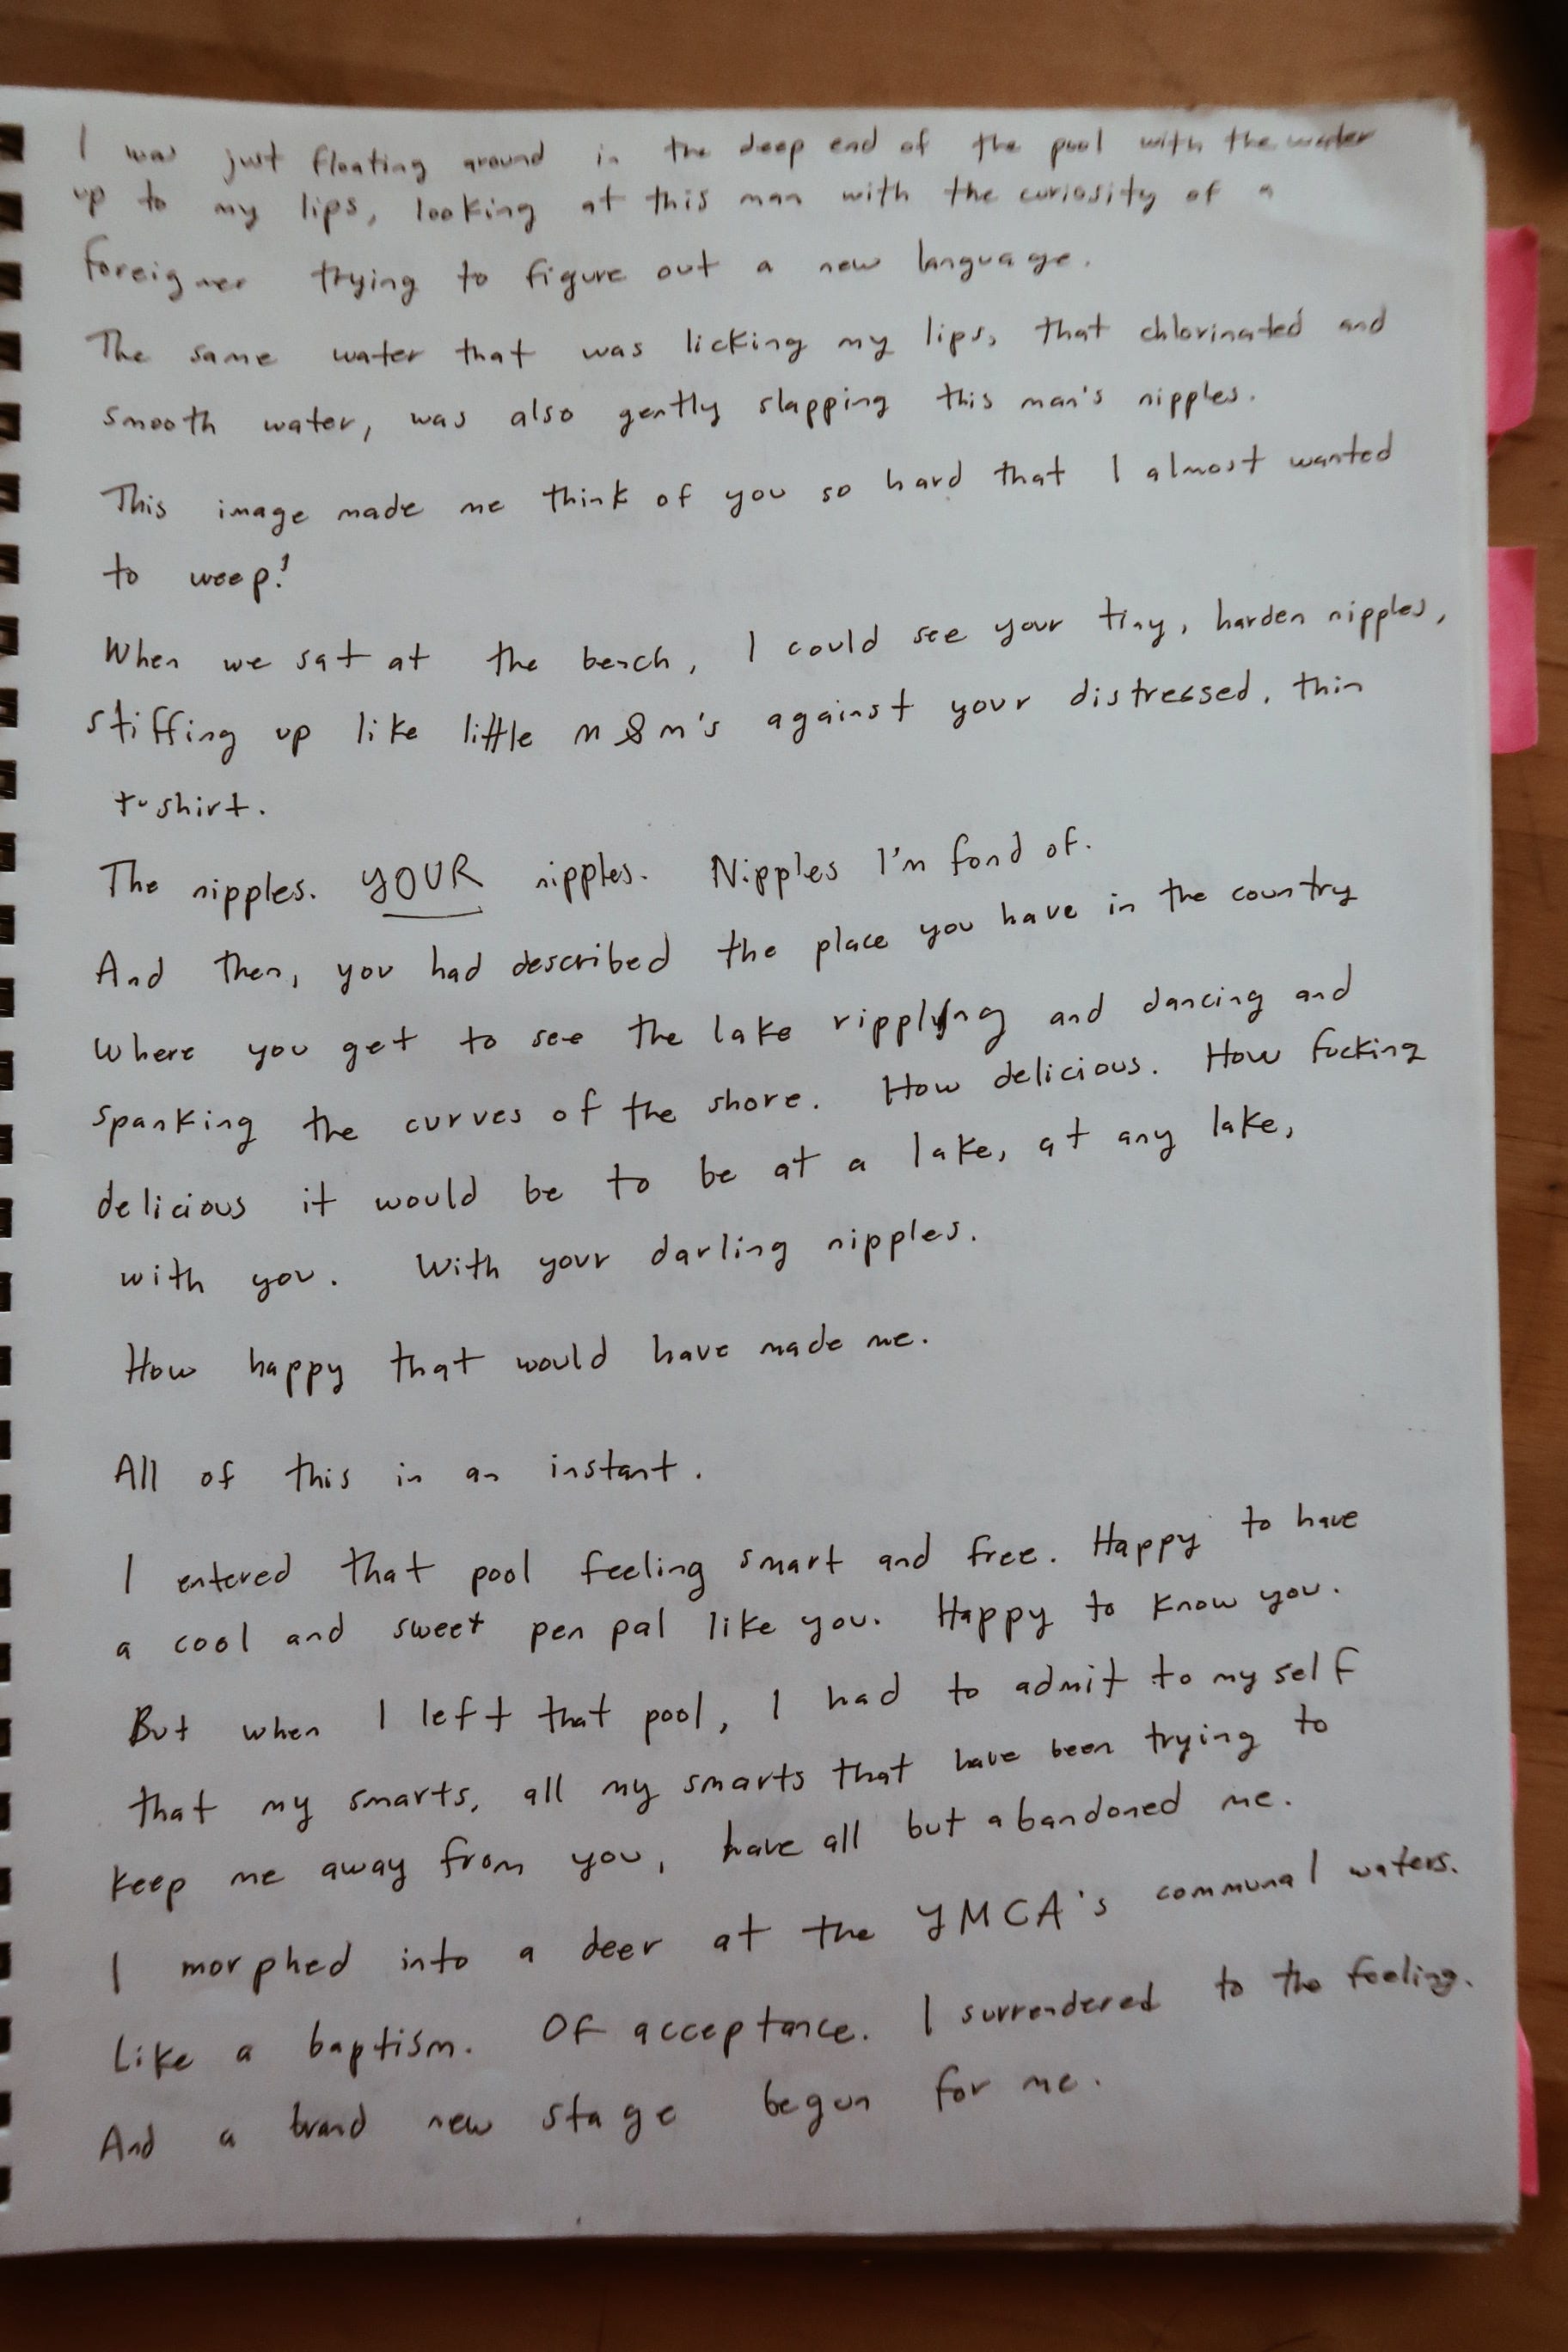 I was just floating around in the deep end of the pool with the water
up to my lips, looking at this man with the curiosity of a
foreigner trying to figure out a new language.
The same water that was licking my lips, that chlorinated and
smooth water, was also gently slapping this man's nipples.
This image made me think of you so hard that I almost wanted
to weep!
When we sat at the bench, I could see your tiny, harden nipples,
stiffing up like little m&m's against your distressed, thin
t-shirt.
The nipples. YOUR nipples. Nipples I'm fond of.
And then, you had described the place you have in the country
Where you get to see the lake rippling and dancing and
spanking the curves of the shore. How delicious. How fucking
delicious it would be to be at a lake, at any lake,
with you. With your darling nipples.
How happy that would have made me.
All of this in an instant.
I entered that pool feeling smart and free. Happy to have
a cool and sweet pen pal like you. Happy to know you.
But when I left that pool, I had to admit to my self
that my smarts, all my smarts that have been trying to
keep me away from you, have all but abandoned me.
I morphed into a deer at the YMCA's communal waters.
Like a baptism. Of acceptance. I surrendered to the feeling.
And a brand new stage begun for me.